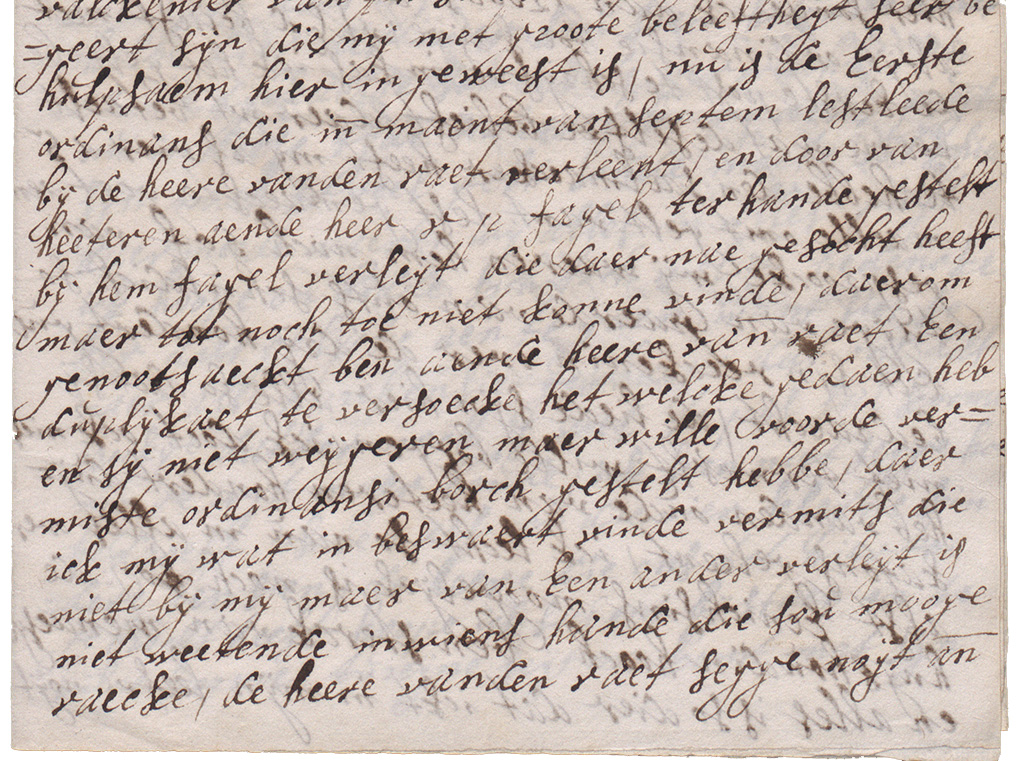 valckenier van
=geert sijn die mij met groote beleeftheyt seer be
hulpsaem hier in geweest is / nu is de Eerste
ordinans die in maent van septem lestleede
bij de heere vanden raet verleent / en door van
heeteren aende heer r p fagel ter hande gestelt
bij hem fagel verleijt die daer nae gesocht heeft
maer tot noch toe niet konne vinde / daerom
genootsaeckt ben aende heere van raet Een
duplijkaet te versoecke het welcke gedaen heb
en sij niet weijgeren maer wille voorde ver=
miste ordinansi borch gestelt hebbe / daer
ick mij wat in beswaert vinde vermits die
niet bij mij maer van Een ander verleijt is
niet weetende in wiens hande die sou mooge
raecke / de heere vanden raet segge noijt an